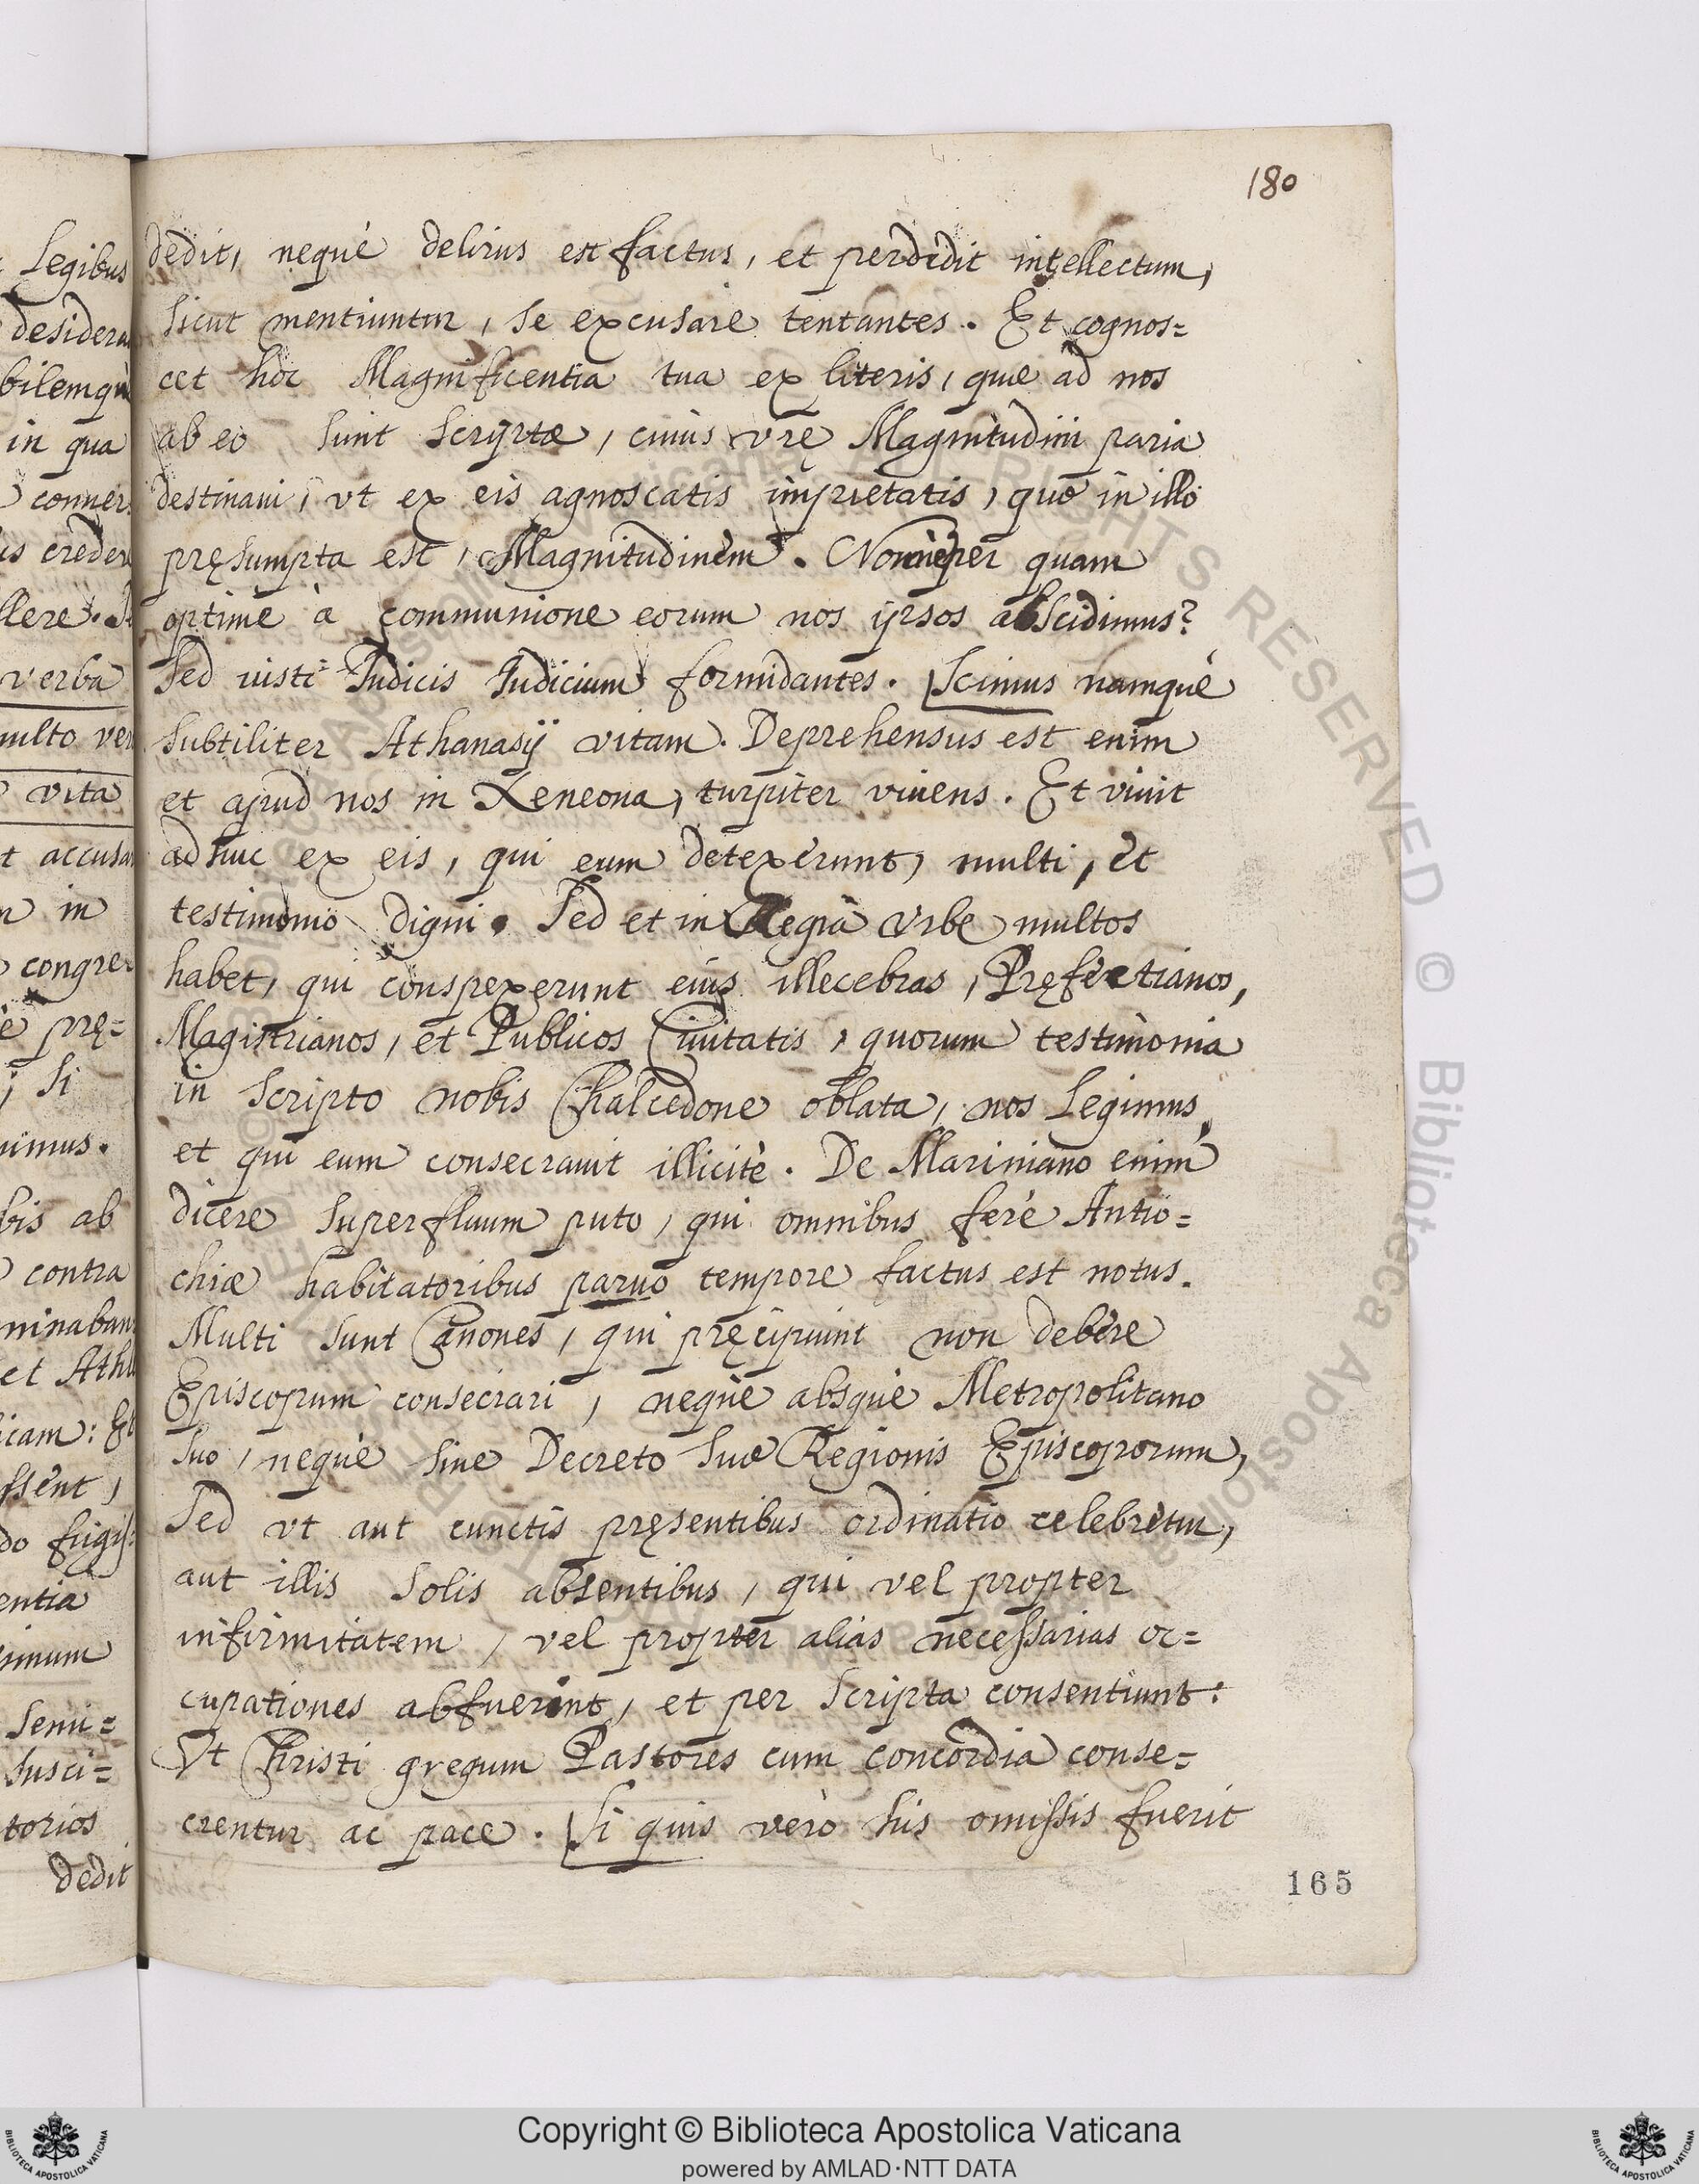 180
dedit, nequè delirus est factus, et perdidit intellectum,
sicut mentiuntur, se excusare tentantes. Et cognos=
cet hoc Magnificentia tua ex literis, quæ ad nos
ab eo sunt scriptæ, cuius vrę Magnitudini paria
destinaui, vt ex eis agnoscatis impietatis, quæ in illo
pręsumpta est, Magnitudinem. Nonne per quam
optimè à communione eorum nos ipsos abscidimus?
Sed iusti Iudicis Iudicium formidantes. Scimus namquè
subtiliter Athanasij vitam. Deprehensus est enim
et apud nos in Xeneona, turpiter viuens. Et viuit
adhuc ex eis, qui eum detexerunt, multi, et
testimonio digni. Sed et in Regia Vrbe multos
habet, qui conspexerunt eius illecebras, Pręfectianos,
Magistrianos, et Publicos Ciuitatis, quorum testimonia
in scripto nobis Chalcedone oblata, nos legimus,
et qui eum consecrauit illicitè. De Mariniano enim
dicere superfluum puto, qui omnibus ferè Antio=
chiæ habitatoribus paruo tempore factus est notus.
Multi sunt Canones, qui pręcipiunt non debere
Episcopum consecrari, nequè absquè Metropolitano
suo, nequè sine Decreto suæ Regionis Episcoporum,
Sed vt aut cunctis pręsentibus ordinatio celebretur,
aut illis solis absentibus, qui vel propter
infirmitatem, vel propter alias necessarias oc=
cupationes abfuerint, et per scripta consentiunt:
Vt Christi gregum Pastores cum concordia conse=
crentur ac pace. Si quis verò his omissis fuerit
165
Legibus
desidera
bilemquè
in qua
conuer
is creder
llere.
verba
multo ver
vita
t accusa
in
congre
è prę=
; si
nimus.
bis ab
contra
minaban
et Atha
icam: Et
ssent,
do fugis
entia
imum
Semi=
susci=
torios
dedit
Copyright © Biblioteca Apostolica Vaticana
powered by AMLAD·NTT DATA